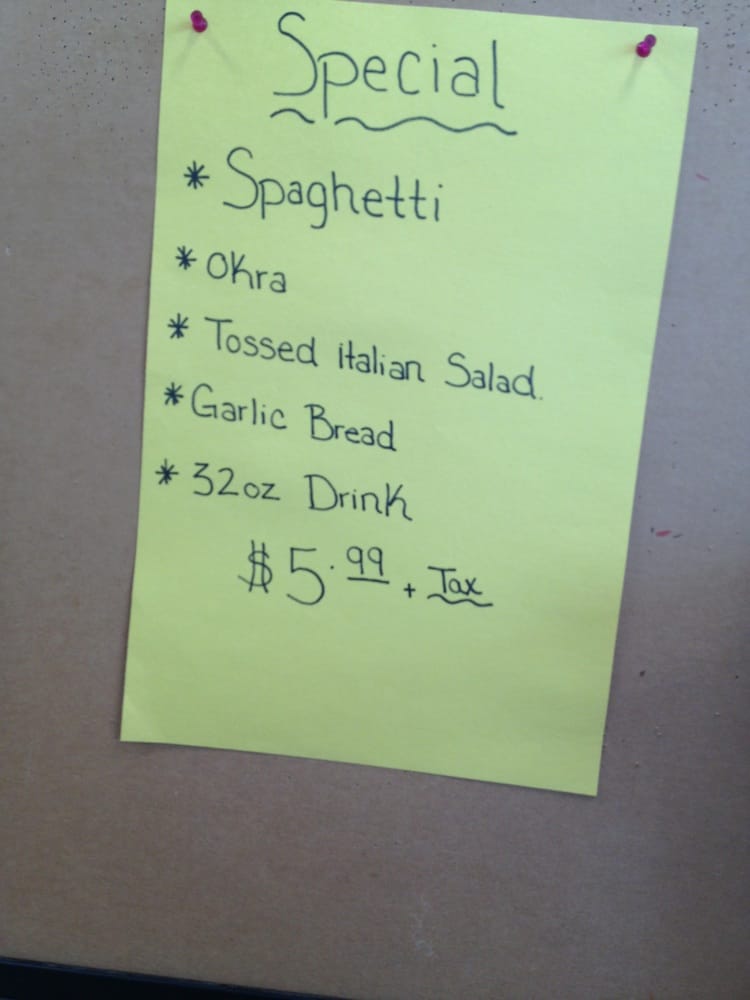 Special
* Spaghetti
* Okra
* Tossed italian Salad.
* Garlic Bread
* 32oz Drink
$5.99 + Tax